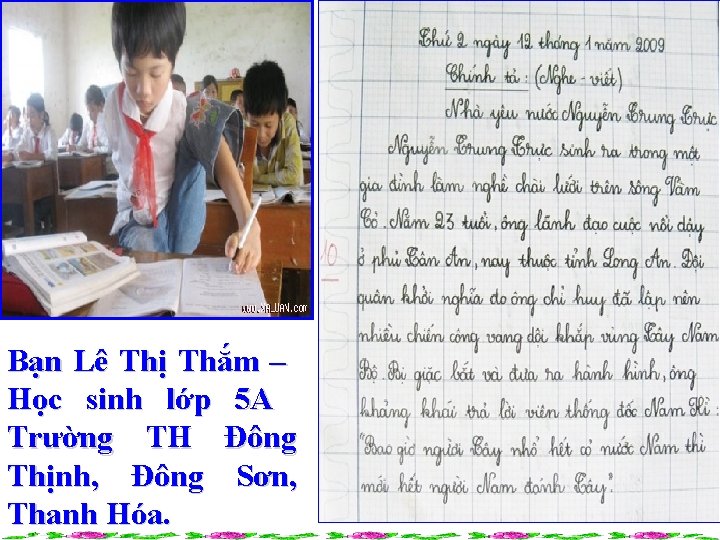 www.VNUAN.com
Bạn Lê Thị Thắm –
Học sinh lớp 5A
Trường TH Đông
Thịnh, Đông Sơn,
Thanh Hóa.
Thứ 2 ngày 12 tháng 1 năm 2009
Chính tả : (Nghe - viết)
Nhà yêu nước Nguyễn Trung Trực
Nguyễn Trung Trực sinh ra trong một
gia đình làm nghề chài lưới trên sông Vàm
Cỏ. Năm 23 tuổi, ông lãnh đạo cuộc nổi dậy
ở phủ Tân An, nay thuộc tỉnh Long An. Đội
10
quân khởi nghĩa do ông chỉ huy đã lập nên
nhiều chiến công vang dội khắp vùng Tây Nam
Bộ. Bị giặc bắt và đưa ra hành hình, ông
khảng khái trả lời viên thống đốc Nam Kì :
"Bao giờ người Tây nhổ hết cỏ nước Nam thì
mới hết người Nam đánh Tây."